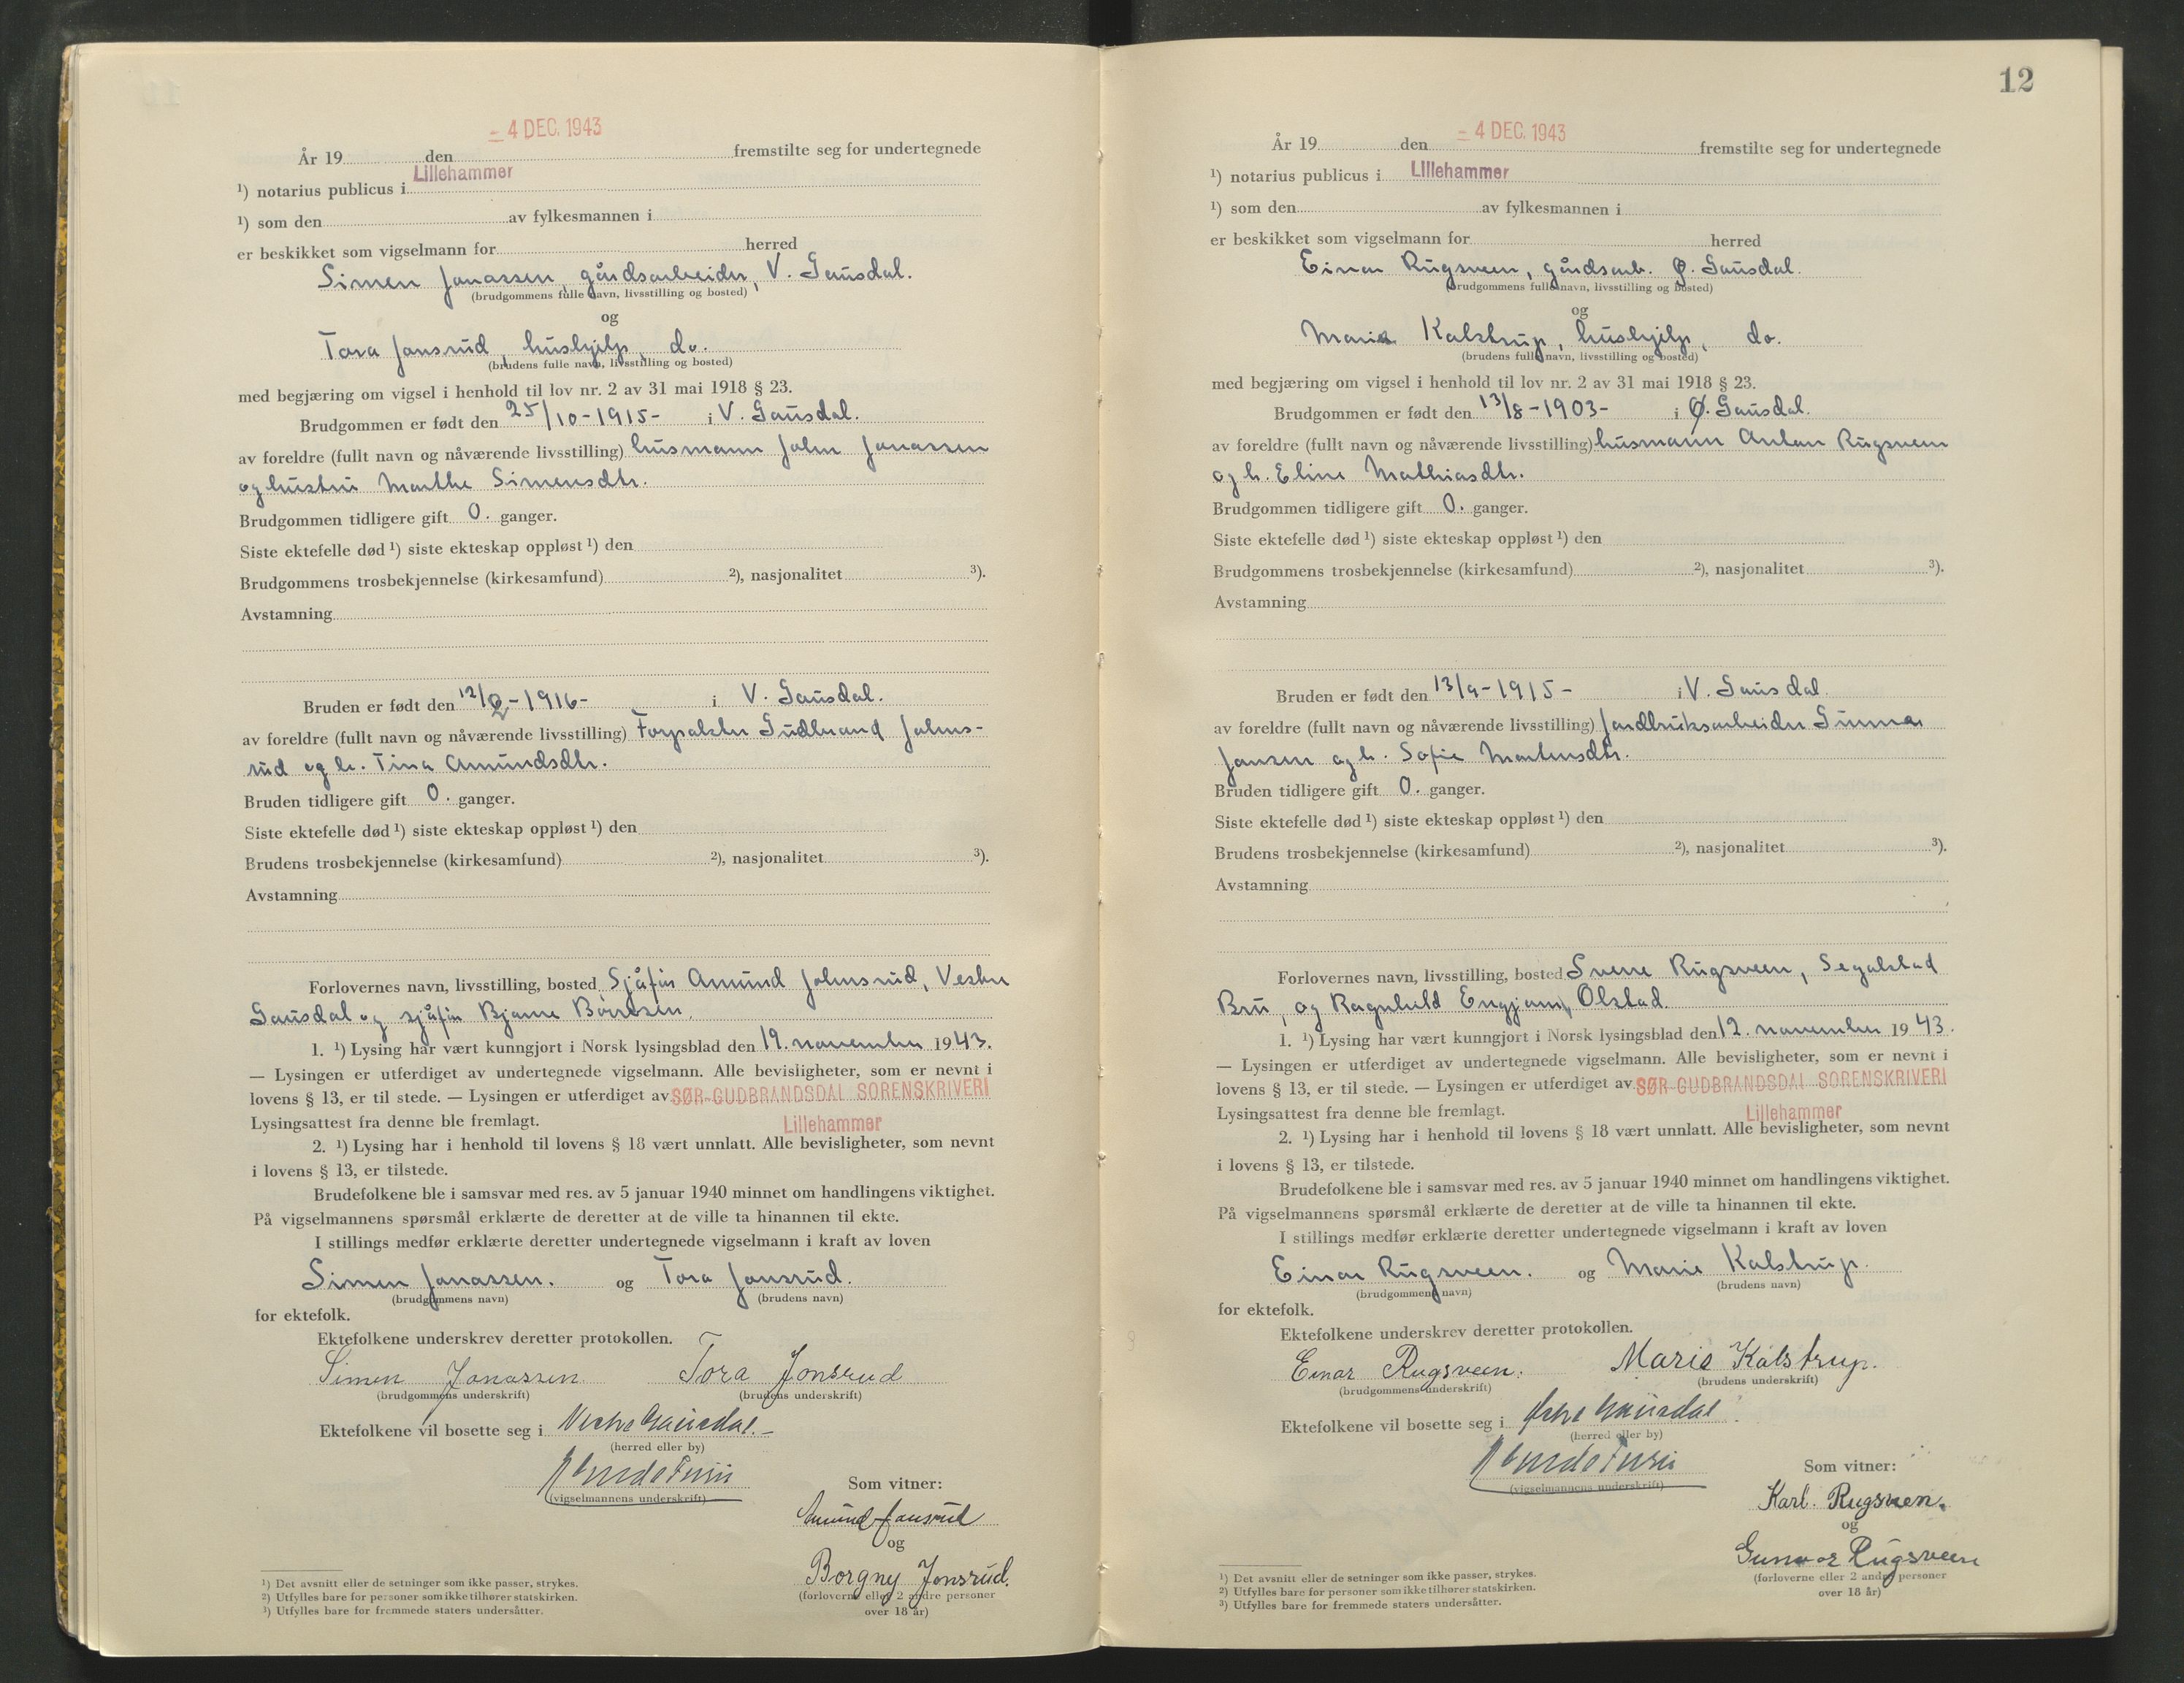 - 4 DEC. 1943
År 19 den fremstilte seg for undertegnede
¹) notarius publicus i Lillehammer
¹) som den av fylkesmannen i
er beskikket som vigselmann for herred
Simen Jonassen, gårdsarbeider, V. Gausdal.
(brudgommens fulle navn, livsstilling og bosted)
og
Tora Jonsrud, hushjelp, do.
(brudens fulle navn, livsstilling og bosted)
med begjæring om vigsel i henhold til lov nr. 2 av 31 mai 1918 § 23.
Brudgommen er født den 25/10-1915- i V. Gausdal.
av foreldre (fullt navn og nåværende livsstilling) husmann John Jonassen
og hustru Marthe Simensdtr.
Brudgommen tidligere gift 0. ganger.
Siste ektefelle død ¹) siste ekteskap oppløst ¹) den
Brudgommens trosbekjennelse (kirkesamfund) ²), nasjonalitet ³).
Avstamning
Bruden er født den 12/2-1916- i V. Gausdal.
av foreldre (fullt navn og nåværende livsstilling) Forpakter Gudbrand Johns-
rud og h. Tina Amundsdtr.
Bruden tidligere gift 0. ganger.
Siste ektefelle død ¹) siste ekteskap oppløst ¹) den
Brudens trosbekjennelse (kirkesamfund) ²), nasjonalitet ³).
Avstamning
Forlovernes navn, livsstilling, bosted Sjåfør Amund Johnsrud, Vestre
Gausdal og sjåfør Bjarne Børresen.
1. ¹) Lysing har vært kunngjort i Norsk lysingsblad den 19. november 1943.
— Lysingen er utferdiget av undertegnede vigselmann. Alle bevisligheter, som er nevnt i
lovens § 13, er til stede. — Lysingen er utferdiget av SØR-GUDBRANDSDAL SORENSKRIVERI
Lysingsattest fra denne ble fremlagt. Lillehammer
2. ¹) Lysing har i henhold til lovens § 18 vært unnlatt. Alle bevisligheter, som nevnt
i lovens § 13, er tilstede.
Brudefolkene ble i samsvar med res. av 5 januar 1940 minnet om handlingens viktighet.
På vigselmannens spørsmål erklærte de deretter at de ville ta hinannen til ekte.
I stillings medfør erklærte deretter undertegnede vigselmann i kraft av loven
Simen Jonassen. og Tora Jonsrud.
(brudgommens navn) (brudens navn)
for ektefolk.
Ektefolkene underskrev deretter protokollen.
Simen Jonassen Tora Jonsrud
(brudgommens underskrift) (brudens underskrift)
Ektefolkene vil bosette seg i Vestre Gausdal.-
(herred eller by)
(vigselmannens underskrift)
Som vitner:
Amund Jonsrud
og
Borgny Jonsrud.
(forloverne eller 2 andre personer
over 18 år)
¹) Det avsnitt eller de setninger som ikke passer, strykes.
²) Utfylles bare for personer som ikke tilhører statskirken.
³) Utfylles bare for fremmede staters undersåtter.
12
- 4 DEC. 1943
År 19 den fremstilte seg for undertegnede
¹) notarius publicus i Lillehammer
¹) som den av fylkesmannen i
er beskikket som vigselmann for herred
Einar Rugsveen, gårdsarb. Ø. Gausdal.
(brudgommens fulle navn, livsstilling og bosted)
og
Marie Kalstrup, hushjelp, do.
(brudens fulle navn, livsstilling og bosted)
med begjæring om vigsel i henhold til lov nr. 2 av 31 mai 1918 § 23.
Brudgommen er født den 13/8-1903- i Ø. Gausdal.
av foreldre (fullt navn og nåværende livsstilling) husmann Anton Rugsveen
og h. Eline Mathiasdtr.
Brudgommen tidligere gift 0. ganger.
Siste ektefelle død ¹) siste ekteskap oppløst ¹) den
Brudgommens trosbekjennelse (kirkesamfund) ²), nasjonalitet ³).
Avstamning
Bruden er født den 13/9-1915- i V. Gausdal.
av foreldre (fullt navn og nåværende livsstilling) Jordbruksarbeider Gunnar
Jansen og h. Sofie Martinsdtr.
Bruden tidligere gift 0. ganger.
Siste ektefelle død ¹) siste ekteskap oppløst ¹) den
Brudens trosbekjennelse (kirkesamfund) ²), nasjonalitet ³).
Avstamning
Forlovernes navn, livsstilling, bosted Sverre Rugsveen, Segalstad
Bru, og Ragnhild Engjom, Olstad.
1. ¹) Lysing har vært kunngjort i Norsk lysingsblad den 12. november 1943.
— Lysingen er utferdiget av undertegnede vigselmann. Alle bevisligheter, som er nevnt i
lovens § 13, er til stede. — Lysingen er utferdiget av SØR-GUDBRANDSDAL SORENSKRIVERI
Lysingsattest fra denne ble fremlagt. Lillehammer
2. ¹) Lysing har i henhold til lovens § 18 vært unnlatt. Alle bevisligheter, som nevnt
i lovens § 13, er tilstede.
Brudefolkene ble i samsvar med res. av 5 januar 1940 minnet om handlingens viktighet.
På vigselmannens spørsmål erklærte de deretter at de ville ta hinannen til ekte.
I stillings medfør erklærte deretter undertegnede vigselmann i kraft av loven
Einar Rugsveen. og Marie Kalstrup.
(brudgommens navn) (brudens navn)
for ektefolk.
Ektefolkene underskrev deretter protokollen.
Einar Rugsveen. Marie Kalstrup.
(brudgommens underskrift) (brudens underskrift)
Ektefolkene vil bosette seg i Østre Gausdal.
(herred eller by)
(vigselmannens underskrift)
Som vitner:
Karl. Rugsveen.
og
Gunvor Rugsveen
(forloverne eller 2 andre personer
over 18 år)
¹) Det avsnitt eller de setninger som ikke passer, strykes.
²) Utfylles bare for personer som ikke tilhører statskirken.
³) Utfylles bare for fremmede staters undersåtter.